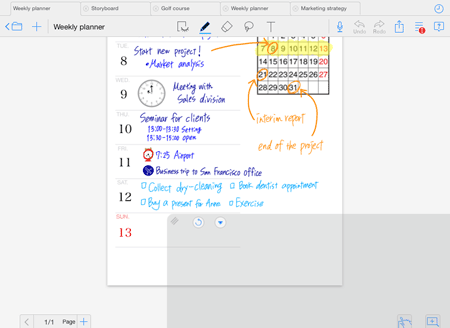 Weekly planner
Storyboard
Golf course
Weekly planner
Marketing strategy
Weekly planner
Undo
Redo
TUE.
8
Start new project!
• Market analysis
7 8 9 10 11 12 13
14 15 16 17 18 19 20
21 22 23 24 25 26 27
28 29 30 31
interim report
end of the project
WED.
9
Meeting with
Sales division
THU.
10
Seminar for clients
13:00-13:30 Setting
13:30-15:00 open
FRI.
11
7:25 Airport
Business trip to San Francisco office
SAT.
12
Collect dry-cleaning
Book dentist appointment
Buy a present for Anne
Exercise
SUN.
13
1/1
Page